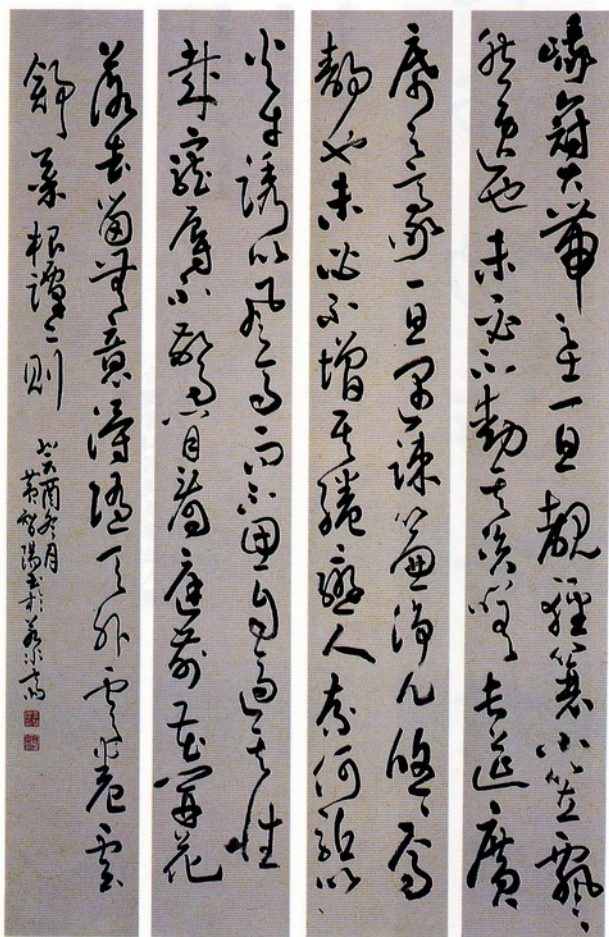 峨冠大帶之士一旦覩輕蓑小笠飄〻
然逸也未必不動其咨嗟長筵廣
席之豪一旦遇疎簾淨几悠〻焉
靜也未必不增其綣戀人奈何驅以
火牛誘以風馬而不思自適其性
哉寵辱不驚閒看庭前花開花
落去留無意漫隨天外雲卷雲
舒 菜根譚二則
癸酉冬月
黃智陽書於